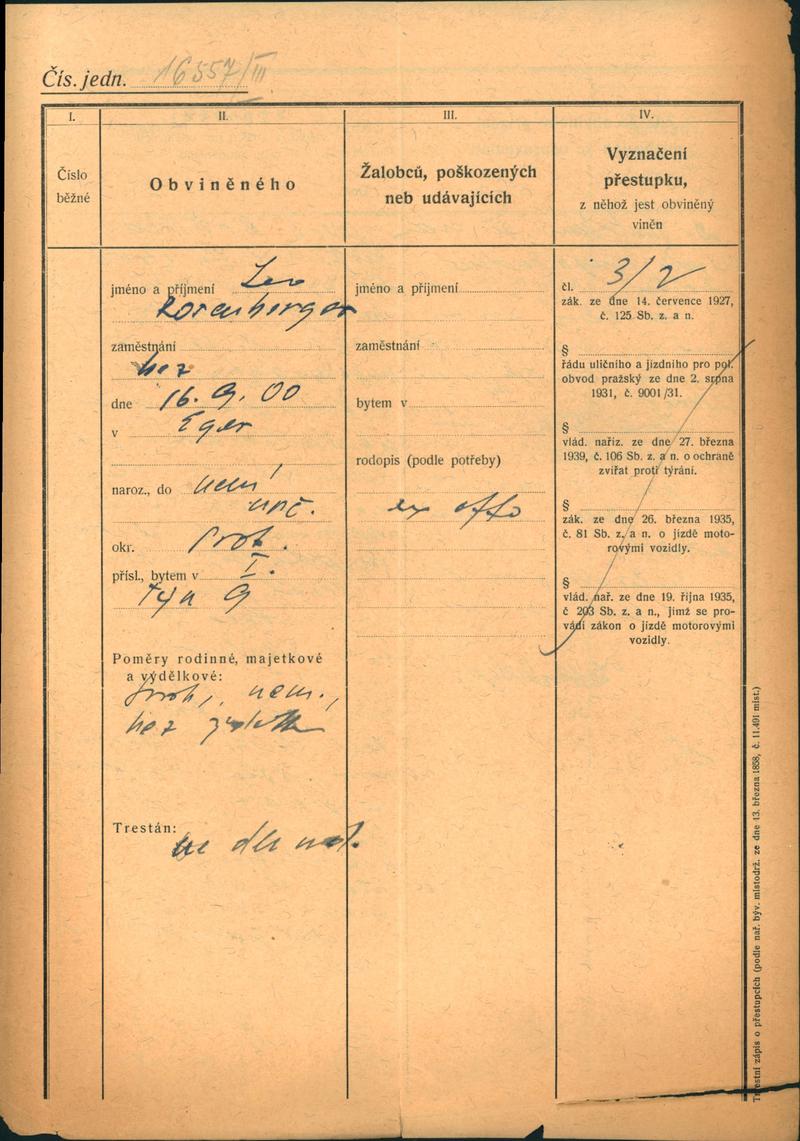 Čís. jedn. 16557/III
I.
II.
III.
IV.
Číslo
běžné
Obviněného
Žalobců, poškozených
neb udávajících
Vyznačení
přestupku,
z něhož jest obviněný
viněn
jméno a příjmení Leo
Rosenberger
zaměstnání
bez
dne 16. 9. 00
v Eger
naroz., do
okr.
přísl., bytem v I.
Týn 9
Poměry rodinné, majetkové
a výdělkové:
bez
Trestán:
jméno a příjmení
zaměstnání
bytem v
rodopis (podle potřeby)
ex offo
čl. 3/2
zák. ze dne 14. července 1927,
č. 125 Sb. z. a n.
§
řádu uličního a jízdního pro pol.
obvod pražský ze dne 2. srpna
1931, č. 9001/31.
§
vlád. naříz. ze dne 27. března
1939, č. 106 Sb. z. a n. o ochraně
zvířat proti týrání.
§
zák. ze dne 26. března 1935,
č. 81 Sb. z. a n. o jízdě moto-
rovými vozidly.
§
vlád. nař. ze dne 19. října 1935,
č 203 Sb. z. a n., jímž se pro-
vádí zákon o jízdě motorovými
vozidly.
Trestní zápis o přestupcích (podle nař. býv. místodrž. ze dne 13. března 1858, č. 11.491 míst.)